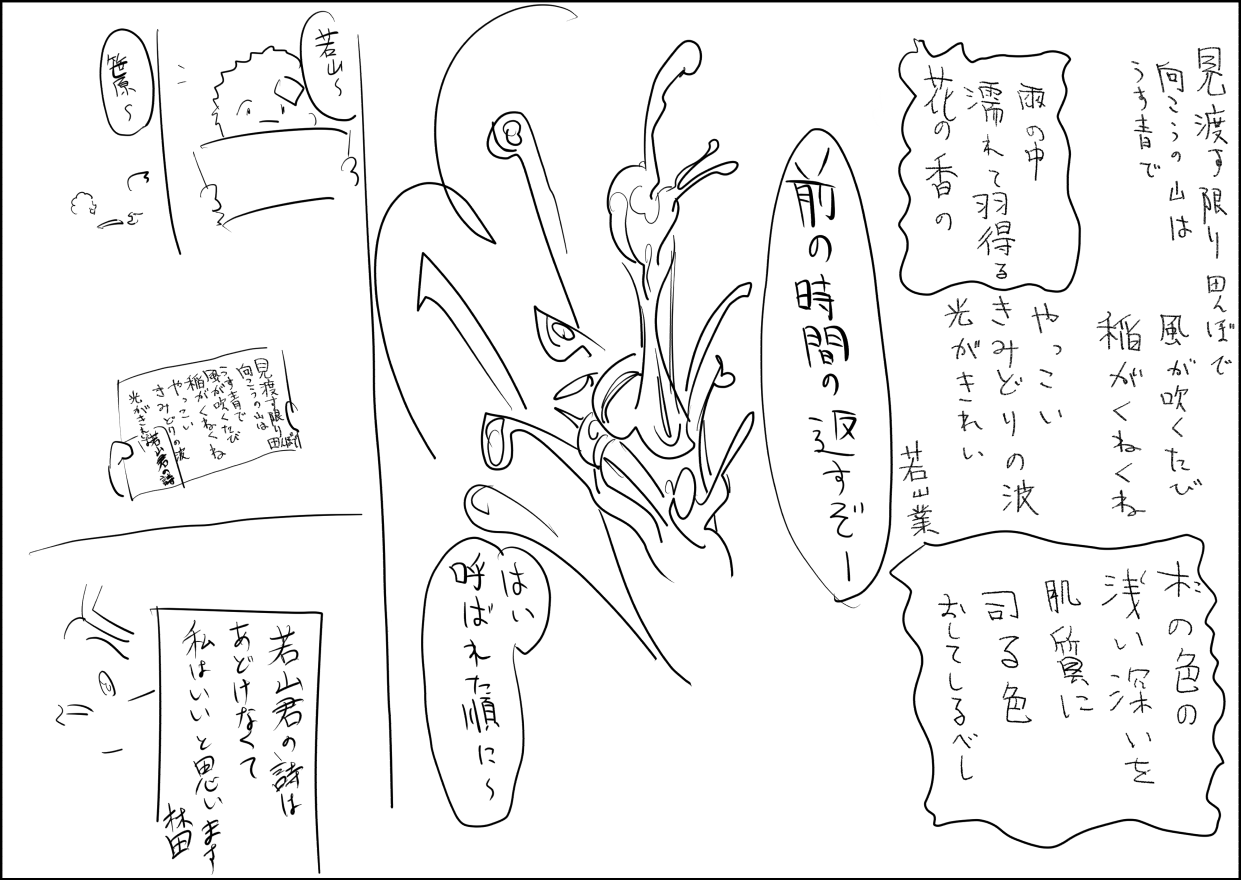 見渡す限り 田んぼで
向こうの山は
うす青で
風が吹くたび
稲がくねくね
やっこい
きみどりの波
光がきれい
若山業
雨の中
濡れて羽得る
花の香の
木の色の
浅い深いを
肌質に
司る色
おしてしるべし
前の時間の返すぞー
はい
呼ばれた順に〜
若山〜
笹原〜
見渡す限り 田んぼで
向こうの山は
うす青で
風が吹くたび
稲がくねくね
やっこい
きみどりの波
光がきれい
若山君の詩
若山君の詩は
あどけなくて
私はいいと思います
林田